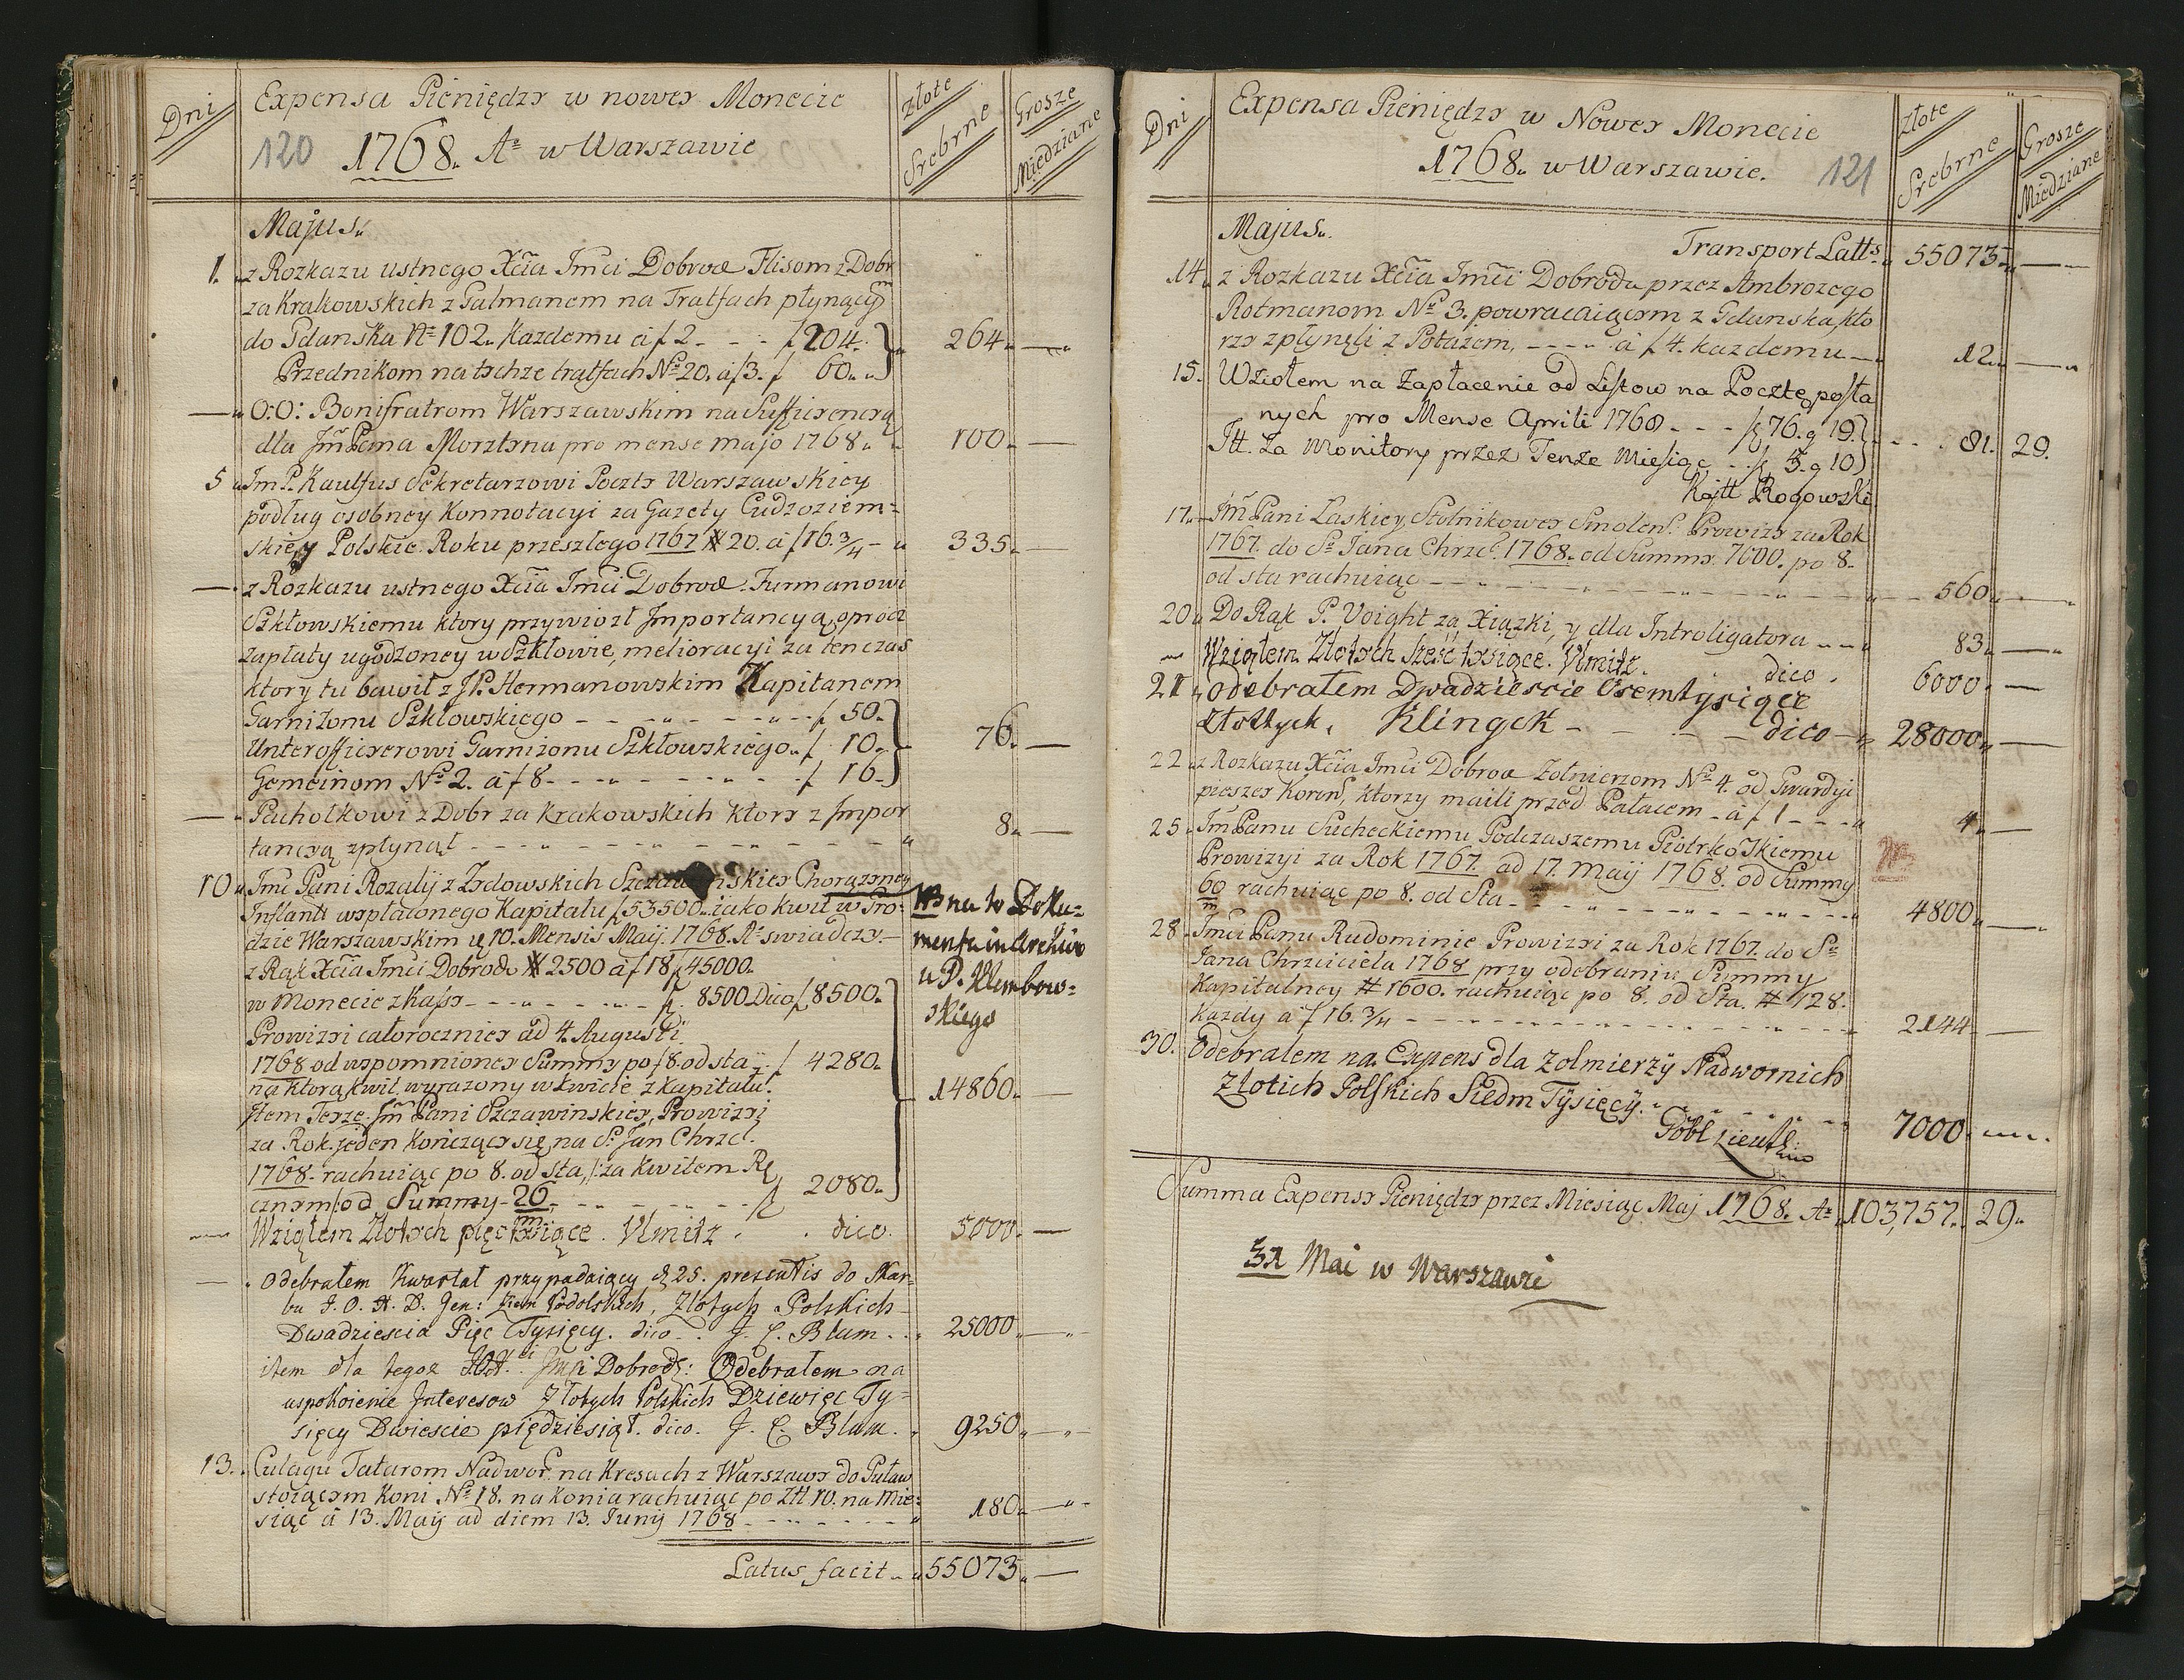 Dni
Expensa Pieniędzy w nowey Monecie
120 1768. Aº w Warszawie
Złote Srebrne
Grosze Miedziane
Majus.
1. z Rozkazu ustnego Xcia Jmci Dobrod. Flisom z Dobr
za Krakowskich z Galmanem na Tratfach płynącÿm
do Gdanska Nº 102. Kazdemu a f 2 - - - f 204. 264. —
Przednikom na tychże tratfach Nº 20. a f 3. f 60.
— O:O: Bonifratrom Warszawskim na Sufficyencyą
dla JmPana Morsztyna pro mense majo 1768. 100. —
5 Jm P. Kaulfus Sekretarzowi Poczty Warszawskiey
podług osobney Konnotacyi za Gazety Cudzoziem=
skie, y Polskie Roku przeszłego 1767 # 20. a f 16. 3/4 - 335. —
— z Rozkazu ustnego Xcia Jmci Dobrod. Furmanowi
Szkłowskiemu ktory przywiozł Importancyą, oprocz
zapłaty ugodzoney w Szkłowie, melioracyi za ten czas
ktory tu bawił z JP. Hermanowskim Kapitanem
Garnizonu Szkłowskiego - - - - f 50.
Unterofficyerowi Garnizonu Szkłowskiego. f 10. 76. —
Gemeinom Nº 2. a f 8 - - - - f 16.
— Pachołkowi z Dobr za Krakowskich ktory z Impor
tancyą zpłynął - - - - 8. —
10. Jmc Pani Rozalij z Zydowskich Chorązyney
Inflantt wypłaconego Kapitału f 53500. iako kwit w Gro=
dzie Warszawskim d. 10. Mensis Maij. 1768. Aº swiadczy. —
z Rąk Xcia Jmci Dobrod. # 2500 a f 18 f 45000.
w Monecie z Kassy - - - - f. 8500 Dico f 8500.
NB na to Doku=
menta in Archivo
u P. Klembow=
skiego
Prowizyi całoroczniey ad 4. Augusti
1768 od wspomnioney Summy po f 8. od sta f 4280.
na ktorą kwit wyrazony w kwicie z kapitału. 14860. —
Item Teyze Jm Pani Szczawinskiey, Prowizyi
za Rok jeden kończący się na S. Jan Chrzcl.
1768. rachuiąc po 8. od sta, /: za kwitem Rę
cznym :/ od Summy 26/m - - - - f 2080.
— Wziąłem Złotych pięć tysięce. Kmitz. dico. 5000. —
— Odebrałem Kwartał przypadaiący d. 25. presentis do Skar=
bu J. O. X. D. Gen: Ziem Podolskich, Złotych Polskich
Dwadziescia Pięc Tysięcy. dico. J. C. Blum. 25000. —
item dla tegoz Jmci Dobrodz: Odebrałem na
uspokoienie Interesow Złotych Polskich Dziewięc Ty=
sięcy Dwiescie pięдziesiąt. dico. J. C. Blum. 9250. —
13. Culagu Tatarom Nadwor. na Kresach z Warszawy do Puław
stoiącym Koni Nº 18. na konia rachuiąc po Ztt 10. na Mie=
siąc a 13. Maij ad diem 13. Junij 1768 - - - - 180. —
Latus facit 55073. —
Dni
Expensa Pieniędzy w Nowey Monecie
1768. w Warszawie. 121
Złote Srebrne
Grosze Miedziane
Majus.
Transport Latts. 55073. —
14. z Rozkazu Xcia Jmci Dobrodu przez Ambrozego
Rotmanom Nº 3. powracaiącym z Gdanska, kto
rzy zpłynęli z Potażem, - - - - a f 4. kazdemu — 12. —
15. Wziołem na Zapłacenie od Listow na Pocztę posła
nych pro Mense Aprili 1768 - - - f 76. g 19.
Itt. Za Monitory przez Tenże Miesiąc - - f 5. g 10 81. 29.
Kajtt Rogowski
17. Jm Pani Laskiey Stolnikowey Smolens. Prowizyi za Rok
1767. do S. Jana Chrzc. 1768. od Summy 7000. po 8.
od sta rachuiąc - - - - 560. —
20. Do Rąk P. Voight za Xiązki, y dla Introligatora - - - 83. —
— Wziąłem Złotych sześć tysięce. Kmitz. dico. 6000. —
21 Odebrałem Dwadziescie Osemtysięce
złottych, Klingck - - - - dico - 28000. —
22. z Rozkazu Xcia Jmci Dobrod Żołnierzom Nº 4. od Gwardyi
pieszey Koron, ktorzy maili przed Pałacem - a f 1 - - - 4. —
25. Jm Panu Sucheckiemu Podczaszemu Piotrkoskiemu
Prowizyi za Rok 1767. ad 17. Maij 1768. od Summy
60/m rachuiąc po 8. od Sta - - - - 4800. —
28. Jmci Panu Rudominie Prowizyi za Rok 1767. do S.
Jana Chrzciciela 1768 przy odebraniu Summy
Kapitalney # 1600. rachuiąc po 8. od Sta. # 128.
kazdy a f 16. 3/4 - - - - 2144. —
30. Odebralem na Expens dla Zolmierzÿ Nadwornich
Złotich Polskich Siedm Tÿsięcÿ. - - - - 7000. —
Göbl Lieutt.
Summa Expensy Pieniędzy przez Miesiąc Maj 1768. Aº 103,757. 29.
31 Mai w Warszawie